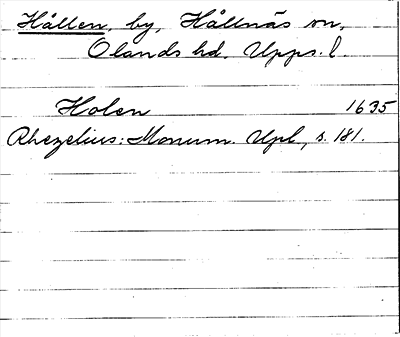 Hållen, by, Hållnäs sn,
Olands hd. Upps. l.
Holen 1635
Rhezelius: Monum. Upl, s. 181.